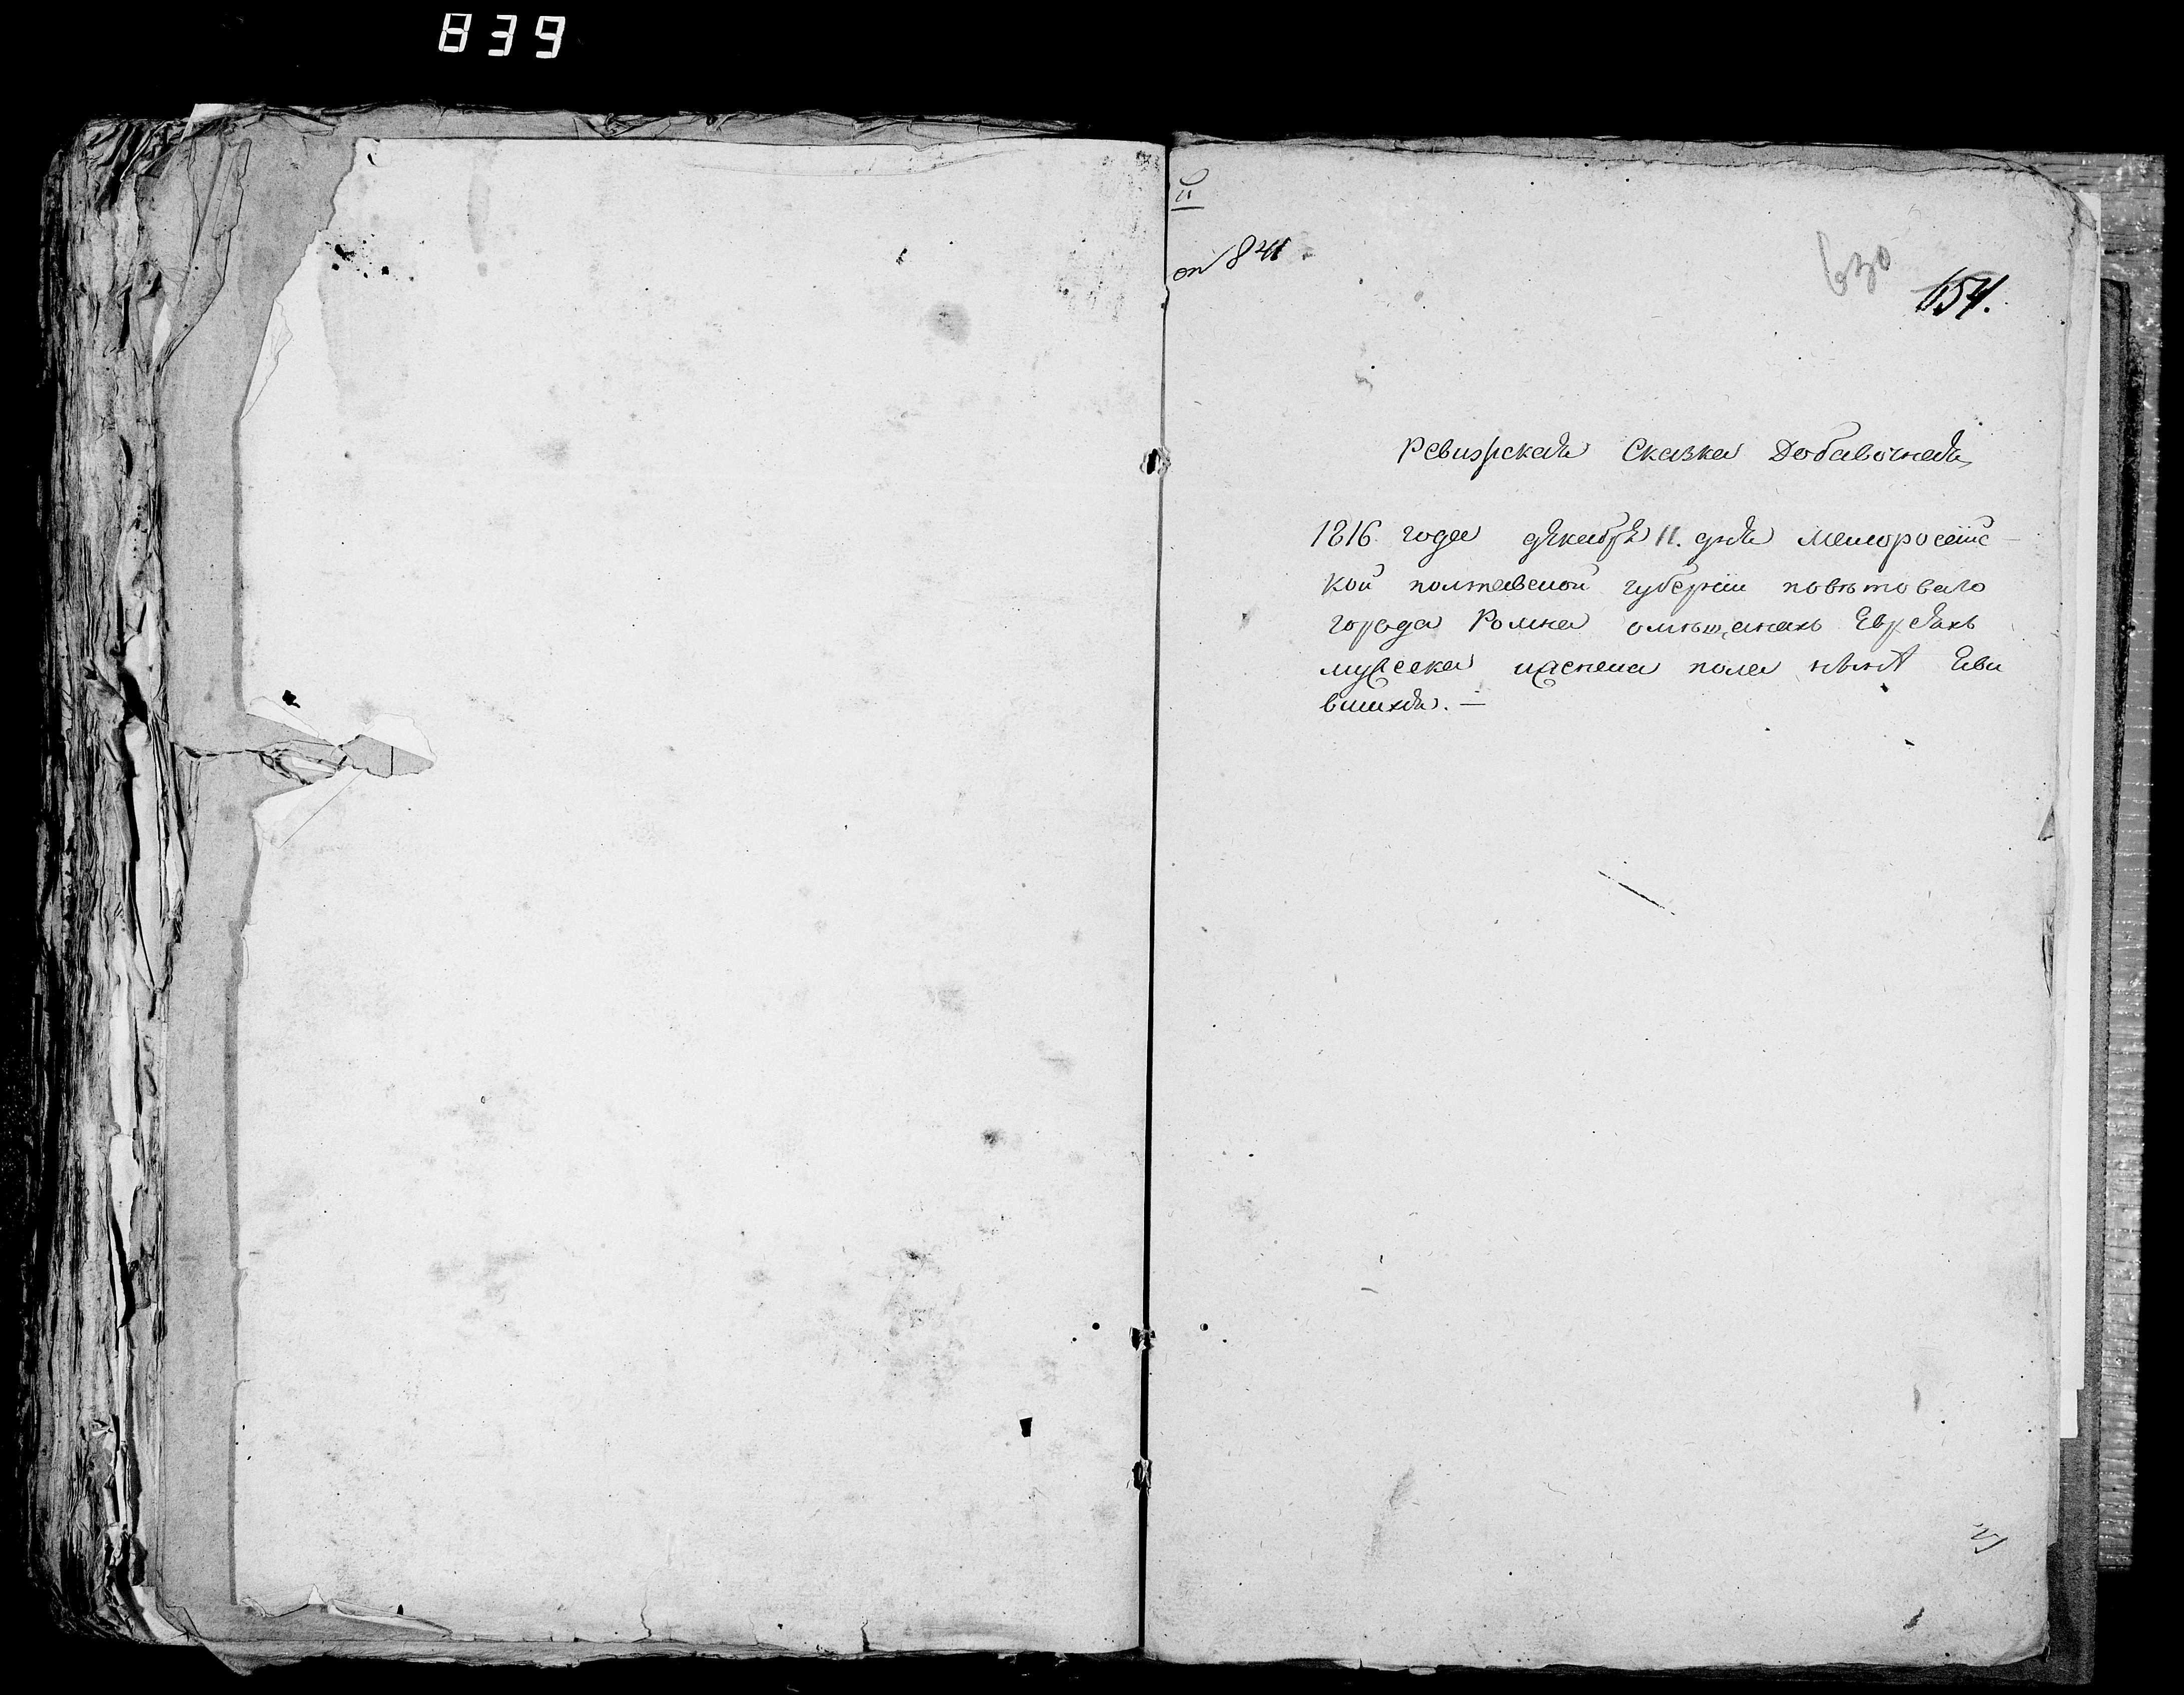 839
оп 841
630
654.
Ревизская Сказка Добавочная
1816 года декабря 11. дня Малоросийс-
кой полтавской губернии повѣтоваго
города Ромна омѣщанахъ Евреахъ
мужеска иженска пола нынѣ Еви
вшихся. —